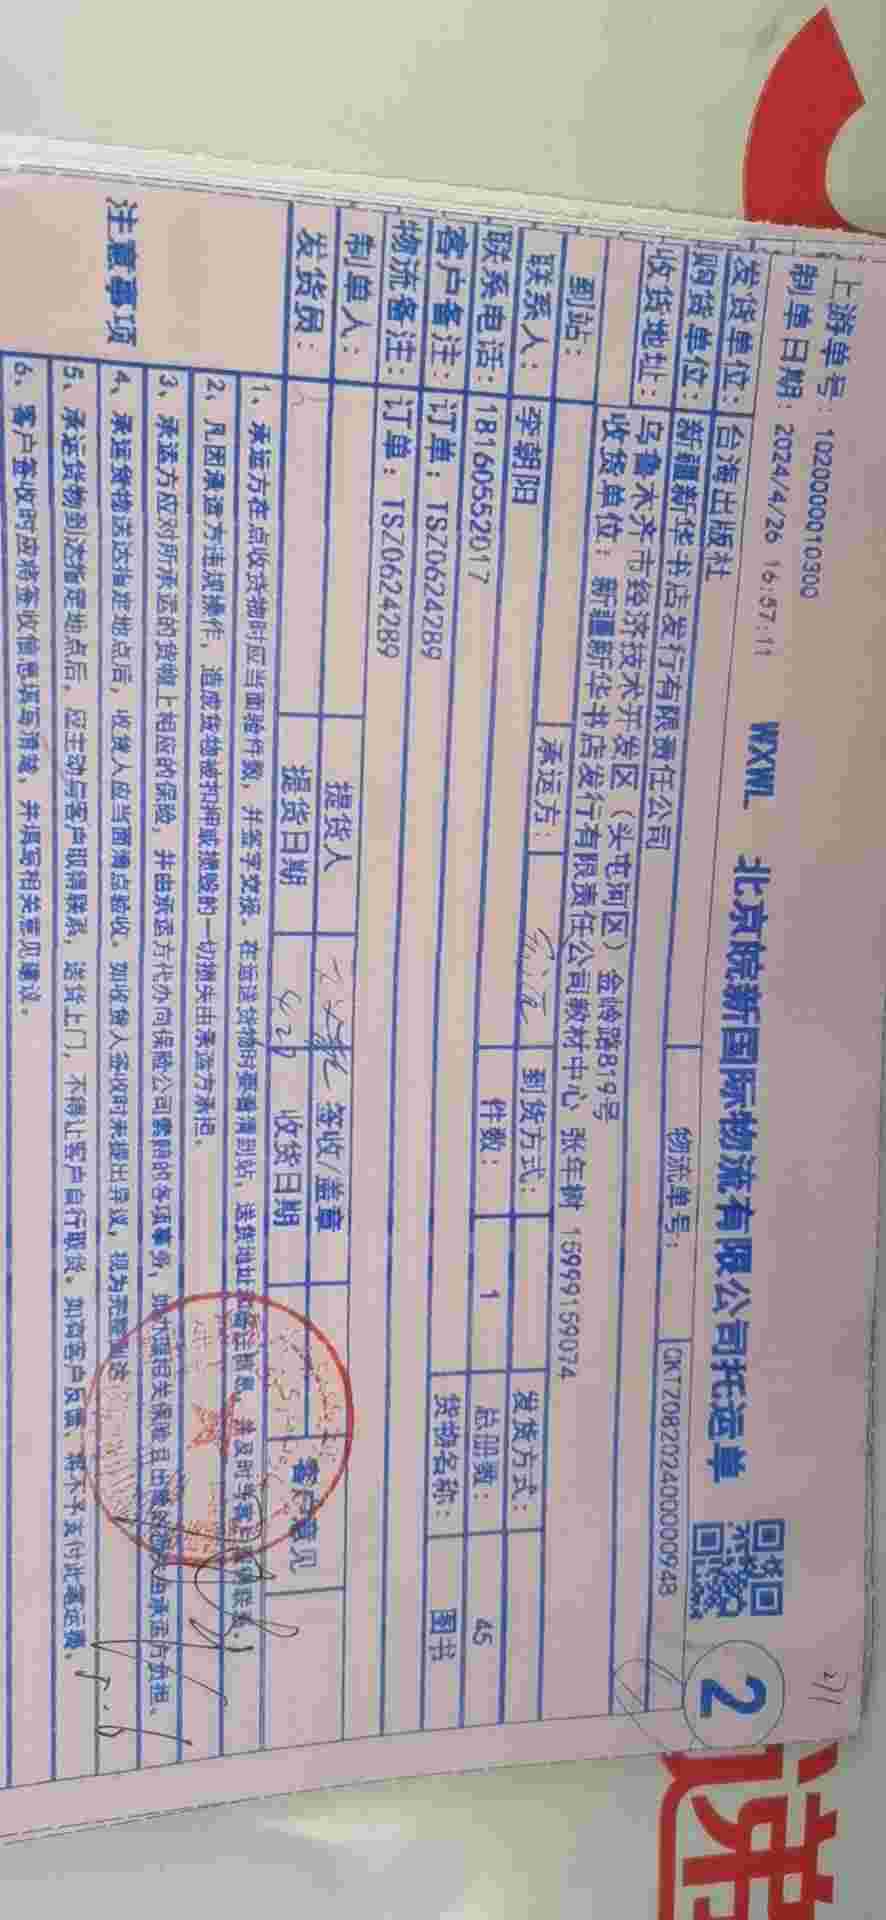 上游单号：102000010300
制单日期：2024/4/26 16:57:11
WXWL 北京皖新国际物流有限公司托运单
2
物流单号：
QKT2082024000000948
发货单位：台海出版社
购货单位：新疆新华书店发行有限责任公司
收货地址：乌鲁木齐市经济技术开发区（头屯河区）金岭路819号
收货单位：新疆新华书店发行有限责任公司教材中心 张年树 15999159074
到站： 承运方： 到货方式： 发货方式：
联系人：李朝阳 件数：1 总册数：45
联系电话：18160552017 货物名称：图书
客户备注：订单：TSZ0624289
物流备注：订单：TSZ0624289
制单人： 提货人 签收/盖章 客户意见
发货员： 提货日期 收货日期
注意事项
1、承运方在点收货物时应当面验件数，并签字交接。在运送货物时要看清到站，送货地址
2、凡因承运方违规操作，造成货物被扣押或诡验的一切损失由承运方承担。
3、承运方应对所承运的货物上相应的保险，并由承运方代办向保险公司索赔的各项事务，
4、承运货物送达指定地点后，收货人应当面清点验收。如收货人签收时未提出异议，视为完整
5、承运货物到达指定地点后，应主动与客户取得联系，送货上门，不得让客户自行取货。如有客户反馈，将不予支付此笔运费。
6、客户签收时应将签收信息填写清楚，并填写相关意见建议。
递